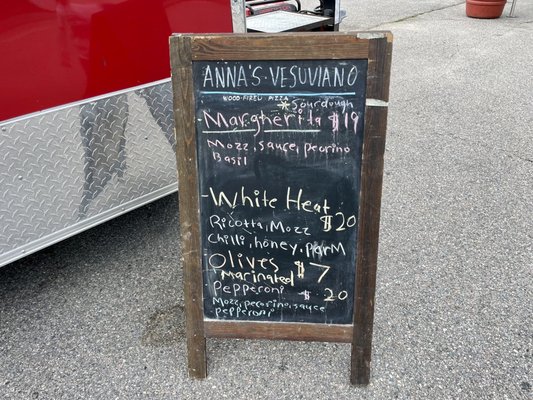 ANNA'S · VESUVIANO
WOOD-FIRED PIZZA
*Sourdough
Margherita $19
Mozz, sauce, pecorino
Basil
-White Heat
$20
Ricotta, Mozz
Chilli, honey, Parm
Olives $7
Marinated
Pepperoni $20
Mozz, pecorino, sauce
pepperoni